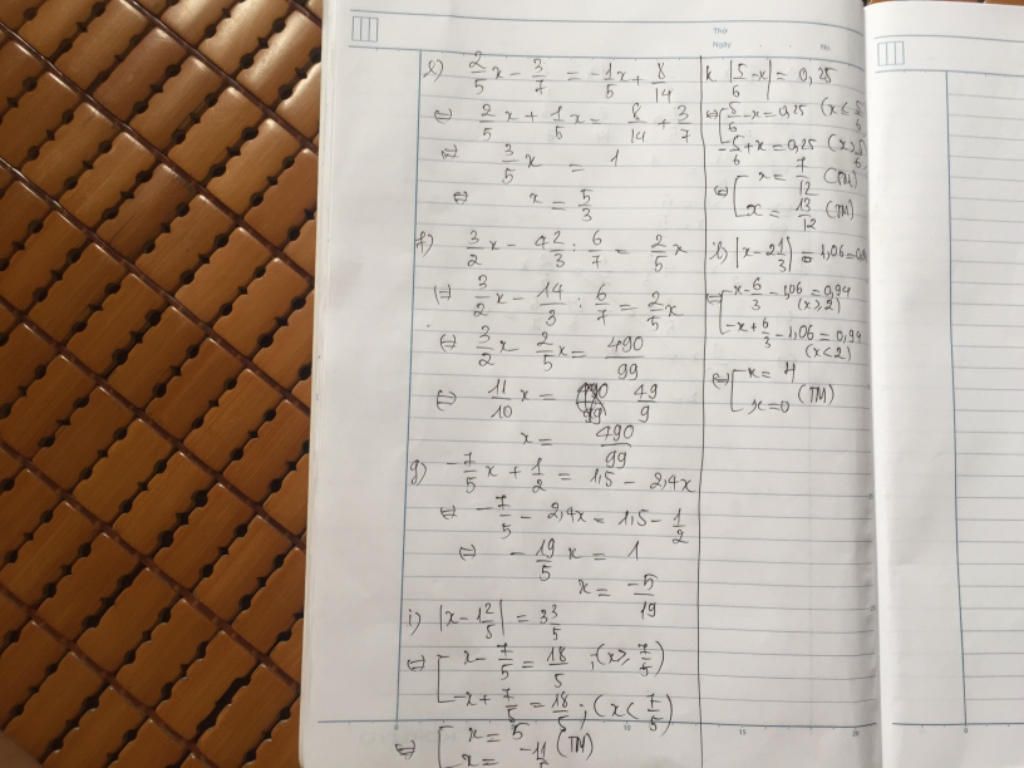 Thứ
Ngày
No.
l) 2/5 x - 3/7 = -1/5 x + 8/14
⇔ 2/5 x + 1/5 x = 8/14 + 3/7
⇔ 3/5 x = 1
⇔ x = 5/3
f) 3/2 x - 4 2/3 : 6/7 = 2/5 x
⇔ 3/2 x - 14/3 : 6/7 = 2/5 x
⇔ 3/2 x - 2/5 x = 490/99
⇔ 11/10 x = 49/9
x = 490/99
g) -7/5 x + 1/2 = 1,5 - 2,4x
⇔ -7/5 - 2,4x = 1,5 - 1/2
⇔ -19/5 x = 1
x = -5/19
i) |x - 1 2/5| = 3 3/5
⇔ [ x - 7/5 = 18/5 ; (x ≥ 7/5)
-x + 7/5 = 18/5 ; (x < 7/5)
⇔ [ x = 5
x = -11 (TM)
k. |5/6 - x| = 0,25
⇔ [ 5/6 - x = 0,25 (x ≤ 5/6
-5/6 + x = 0,25 (x > 5/6
⇔ [ x = 7/12 (TM)
x = 13/12 (TM)
|x - 2 1/3| - 1,06 =
⇔ [ x - 6/3 - 1,06 = 0,94
(x ≥ 2)
-x + 6/3 - 1,06 = 0,94
(x < 2)
⇔ [ x = 4
x = 0 (TM)
10
15
20
0